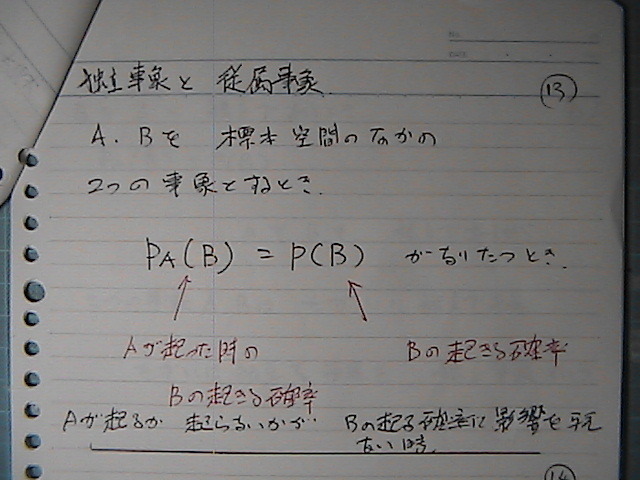 No.
DATE
独立事象と 従属事象
13
A. Bを 標本空間のなかの
2つの事象とするとき.
PA(B) = P(B) がなりたつとき.
Aが起った時の Bの起きる確率
Bの起きる確率
Aが起るか 起らないかが Bの起る確率に影響を
ない時.
14